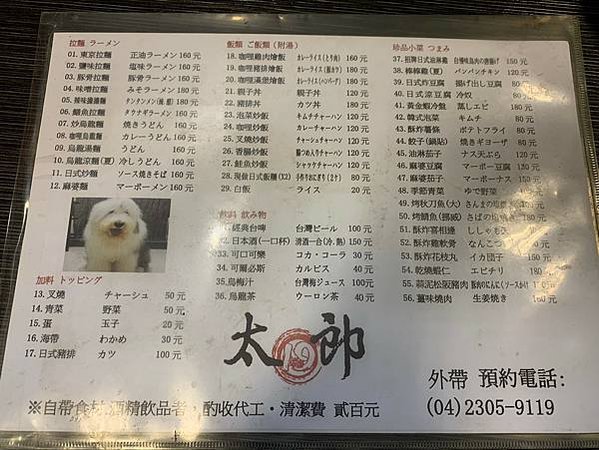 拉麵 ラーメン
01.東京拉麵 正油ラーメン 160 元
02.鹽味拉麵 塩味ラーメン 160 元
03.豚骨拉麵 豚骨ラーメン 180 元
04.味噌拉麵 みそラーメン 180 元
05.辣味擔擔麵 タンタンメン 180 元
06.鯛魚拉麵 180 元
07.炒烏龍麵 焼きうどん 160 元
08.咖哩烏龍麵 カレーうどん 160 元
09.烏龍湯麵 うどん 160 元
10.烏龍涼麵(夏) 冷しうどん 160 元
11.日式炒麵 ソース焼きそば 160 元
12.麻婆麵 マーボーメン 160 元
加料 トッピング
13.叉燒 チャーシュ 50 元
14.青菜 野菜 50 元
15.蛋 玉子 20 元
16.海帶 わかめ 30 元
17.日式豬排 カツ 100 元
飯類 ご飯類(附湯)
18.咖哩雞肉燴飯 カレーライス(とり肉) 160 元
19.咖哩豬排燴飯 カレーライス(豚カツ) 180 元
20.咖哩漢堡燴飯 カレーライス(ハンバーグ) 180 元
21.親子丼 親子丼 160 元
22.豬排丼 カツ丼 180 元
23.泡菜炒飯 キムチチャーハン 120 元
24.咖哩炒飯 カレーチャーハン 120 元
25.叉燒炒飯 チャーシュチャーハン 120 元
26.香腸炒飯 腸つめ入りチャーハン 120 元
27.鮭魚炒飯 シャケケチャーハン 120 元
28.現做日式飯糰(X2) 手作りおにぎり(2ケ) 80 元
29.白飯 ライス 20 元
飲料 飲み物
31.經典台啤 台灣ビール 100 元
32.日本酒(一口杯) 清酒一合(冷.熱) 150 元
33.可口可樂 コカ・コーラ 30 元
34.可爾必斯 カルピス 40 元
35.烏梅汁 台灣梅ジュース 100 元
36.烏龍茶 ウーロン茶 40 元
珍品小菜 つまみ
37.招牌日式滷麻雞 150 元
38.棒棒雞(夏) バンバンチキン 120 元
39.日式炸豆腐 揚げ出し豆腐 80 元
40.日式涼豆腐 冷奴 80 元
41.黃金蝦冷盤 蒸しエビ 180 元
42.韓式泡菜 キムチ 80 元
43.酥炸薯條 ポテトフライ 80 元
44.餃子(鍋貼) 焼きギヨーザ 80 元
45.油淋茄子 ナス天ぷら 120 元
46.麻婆豆腐 マーボ豆腐 120 元
47.麻婆茄子 マーボーナス 150 元
48.季節青菜 ゆで野菜 150 元
49.烤秋刀魚(大) さんまの塩焼 150 元
50.烤鯖魚(挪威) さばの塩焼 180 元
51.酥炸喜相逢 ししゃも 180 元
52.酥炸雞軟骨 なんこつ 180 元
53.酥炸花枝丸 イカ団子 150 元
54.乾燒蝦仁 エビチリ 180 元
55.蒜泥松阪豬肉 180 元
56.薑味燒肉 生姜焼き 160 元
太郎
外帶 預約電話:
(04)2305-9119
※自帶食材.酒精飲品者，酌收代工・清潔費 貳百元